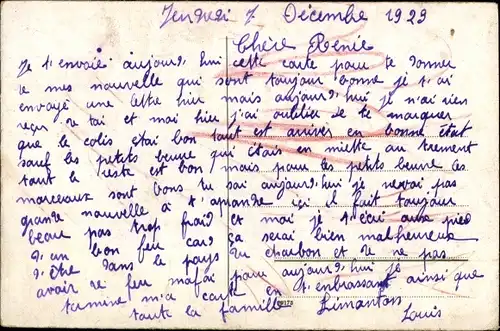 Vendredi 7 Décembre 1923
Chère Renée
Je t'envoie aujourd'hui cette carte pour te donner
de mes nouvelle qui sont toujour bonne je t'ai
envoyé une lettre hier mais aujourd'hui je n'ai rien
reçu de toi et moi hier j'ai oublier de te marquer
que le colis étai bon tout est arriver en bonne état
sauf les petits beurre qui étais en miette autrement
tout le reste est bon mais pour les petits beurre les
morceaux sont bons tu sai aujourd'hui je ne vai pas
grande nouvelle à t'apprendre ici il fait toujour
beau pas trop froid et moi je t'écri aux pied
d'un bon feu car ça serai bien malheureux
d'être dans le pays du charbon et de ne pas
avoir de feu pour aujourd'hui je
termine ma carte en t'enbrassant ainsi que
toute la famille
Louis